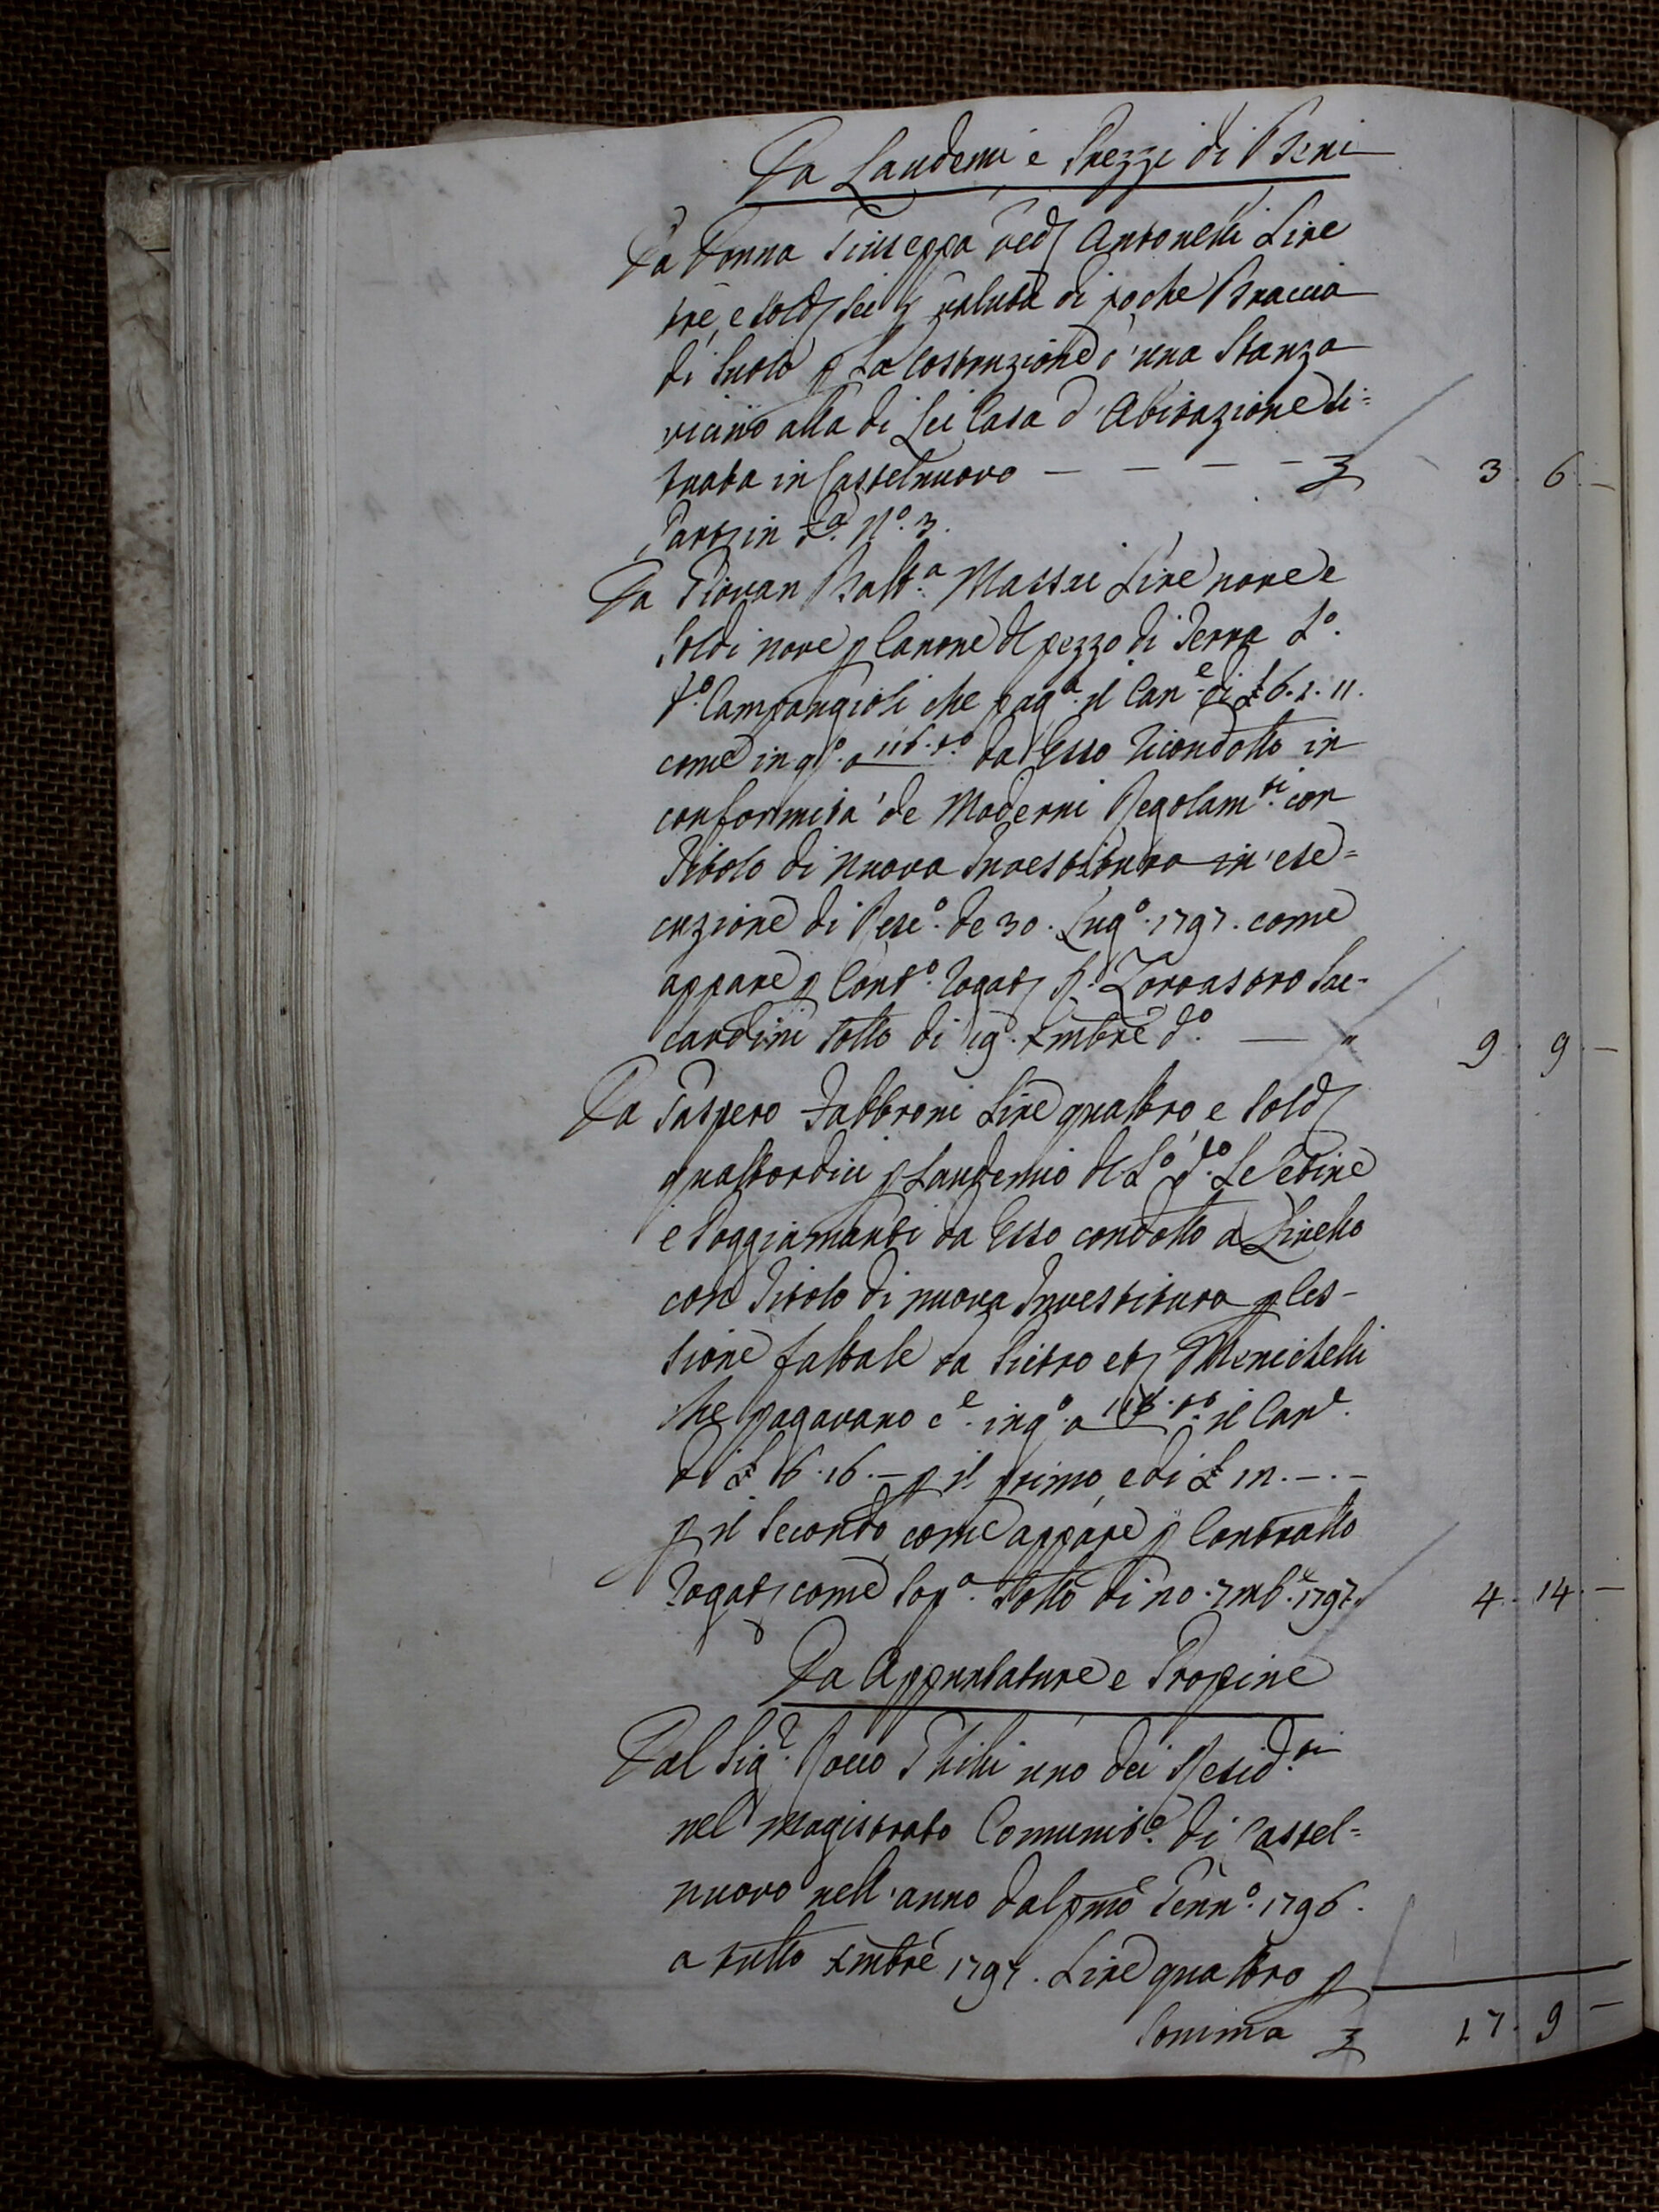 Da Laudemi e Prezzi di Beni
Da Donna Giuseppa Ved. Antonelli Lire
tre, e sold. sei p valuta di poche Braccia
di Suolo p La Costruzione d'una Stanza
vicino alla di Lei Casa d'Abitazione si=
tuata in Castelnuovo — — — — £ 3. 6. —
Part. in Fa. No. 3.
Da Giovan Batta. Massei Lire nove e
Soldi nove p Canone del pezzo di Terra Lo.
do. Campangioli che paga. il Cane. di £ 6. 2. 11.
come in qo. a 116. to. da Esso Ricondotto in
conformità de Moderni Regolamti. con
Titolo di nuova Investitura in ese=
cuzione di Reso. de 30. Lugo. 1797. come
appare p Conto. Rogat. Zoroastro Sac=
cardini sotto di 19. Xmbre do. — " 9. 9. —
Da Gaspero Fabbroni Lire quattro, e sold.
quattordici p Laudemio del Lo. do. Le Cetine
e Poggiamanti da Esso condotto a Livello
con Titolo di nuova Investitura p Ces=
sione fattale da Pietro et. Menichelli
che pagavano ce. in qo. a 116. to. il Cane.
di £ 6. 16. — p il primo, e di £ 12. —. —
p il Secondo, come appare p Contratto
Rogat. come sopa. sotto di 20. 7mbe. 1797. 4. 14. —
Da Appuntature e Propine
Dal Sigr. Rocco Ghilli uno dei Residti
nel Magistrato Comunito. di Castel=
nuovo nell'anno dal pmo Genno. 1796.
a tutto Xmbre 1797. Lire quattro p
Somma £ 17. 9 —